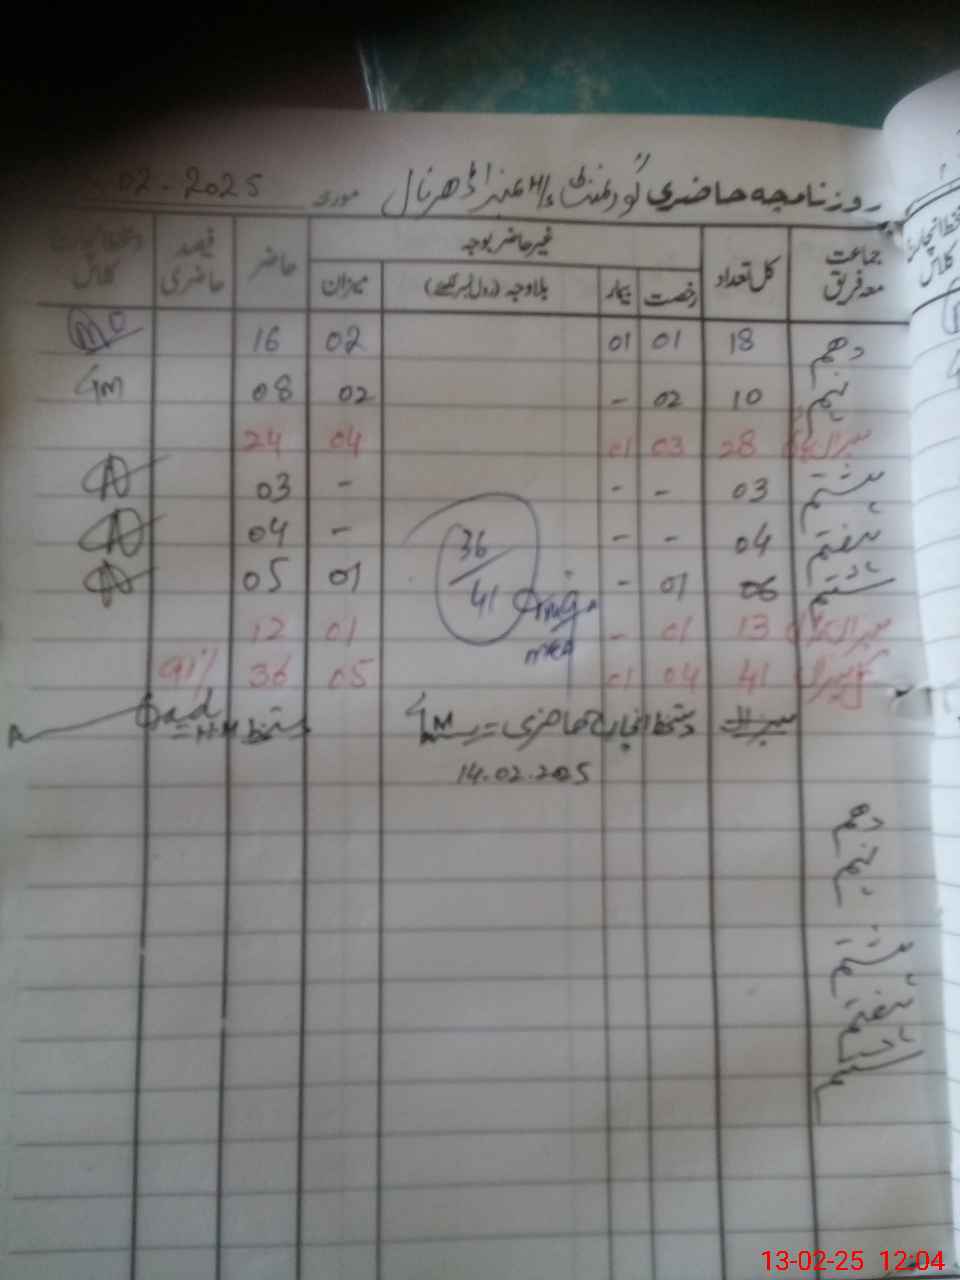 روزنامچہ حاضری گورنمنٹ ڈھرنال مورخہ 02-2025
جماعت معہ فریق کل تعداد غیر حاضر بوجہ حاضر فیصد حاضری کلاس
رخصت بیمار بلاوجہ (رول نمبر لکھیے) میزان
دہم 18 01 01 02 16
نہم 10 02 - 02 08 GM
28 03 01 04 24
ہشتم 03 - - - 03
ہفتم 04 - - - 04
ششم 06 01 - 01 05
36
41
13 01 - 01 12
41 04 01 05 36 91%
دستخط انچارج حاضری = GM دستخط H.M =
14-02-2025
دہم
نہم
ہشتم
ہفتم
ششم
کلاس
13-02-25 12:04